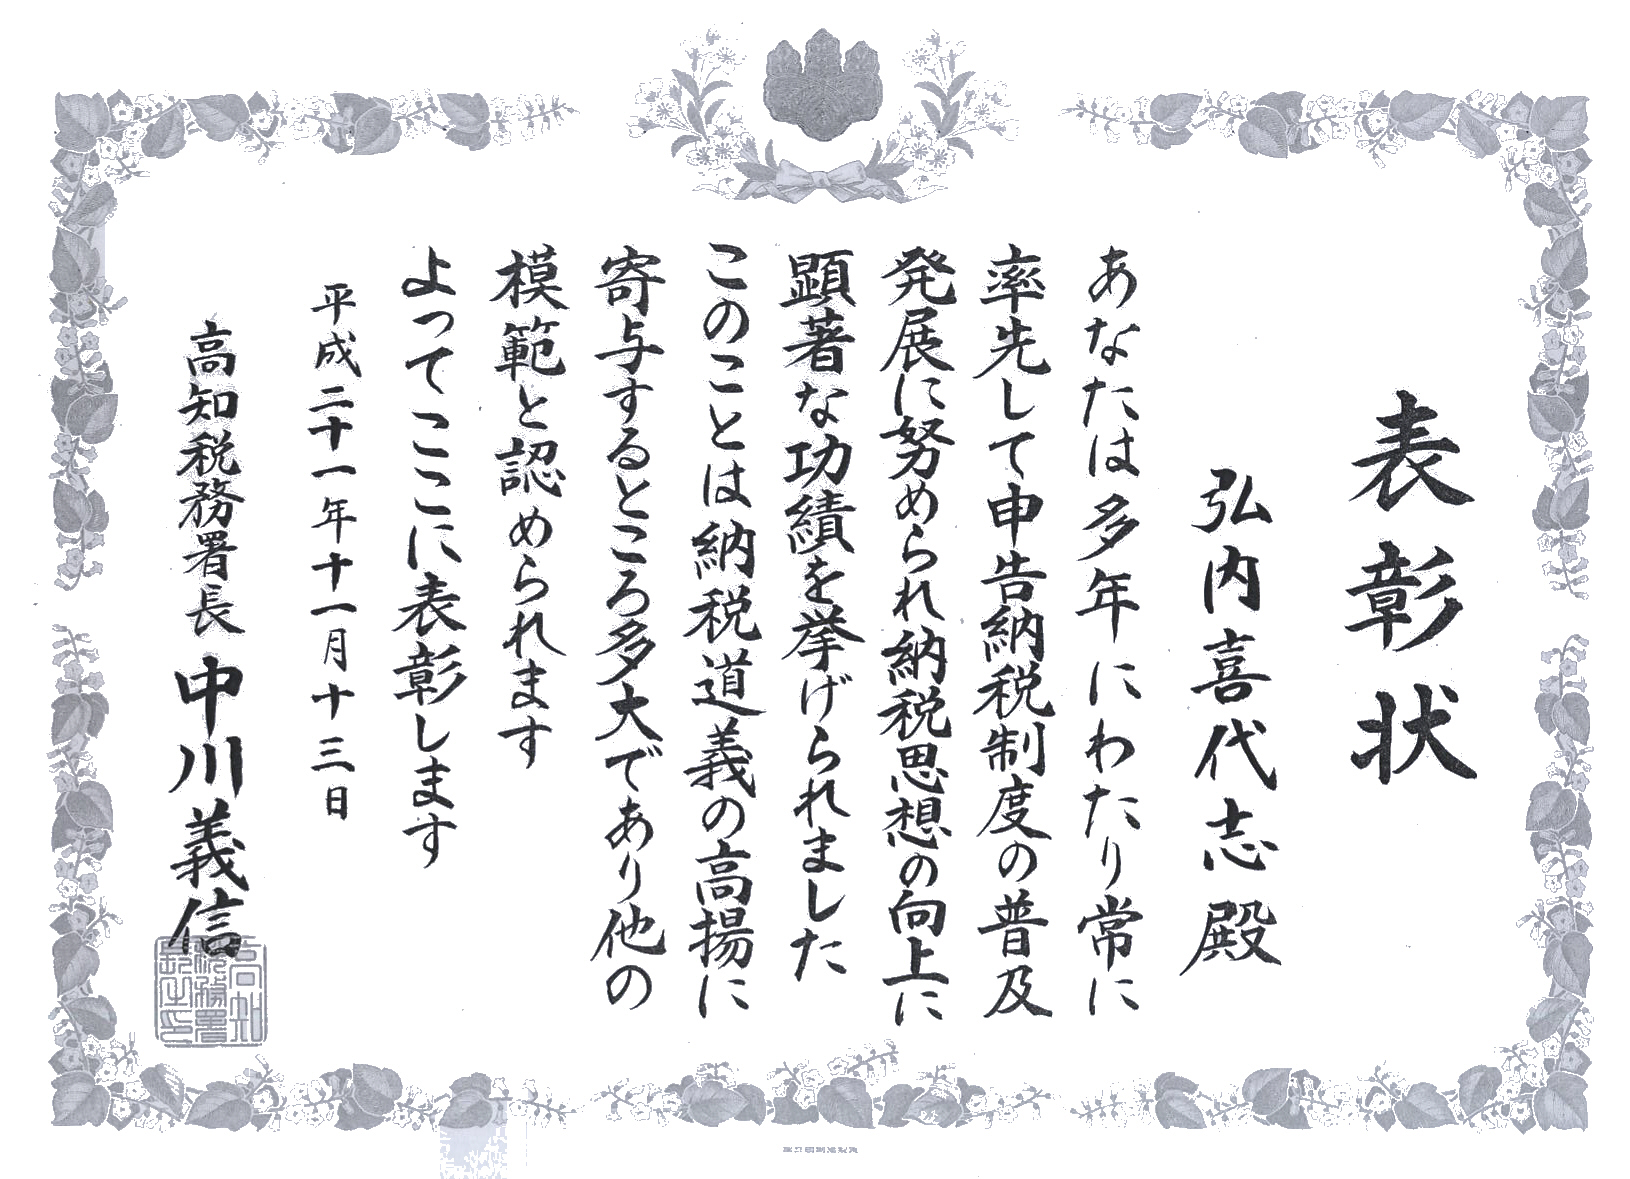 表彰状
弘内喜代志殿
あなたは多年にわたり常に
率先して申告納税制度の普及
発展に努められ納税思想の向上に
顕著な功績を挙げられました
このことは納税道義の高揚に
寄与するところ多大であり他の
模範と認められます
よってここに表彰します
平成二十一年十一月十三日
高知税務署長 中川義信
高知
税務署
長之印